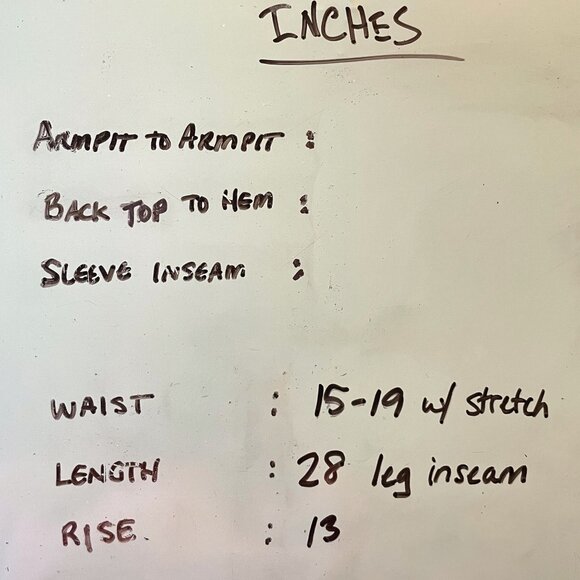 INCHES
ARMPIT TO ARMPIT :
BACK TOP TO HEM :
SLEEVE INSEAM :
WAIST : 15-19 w/ stretch
LENGTH : 28 leg inseam
RISE. : 13